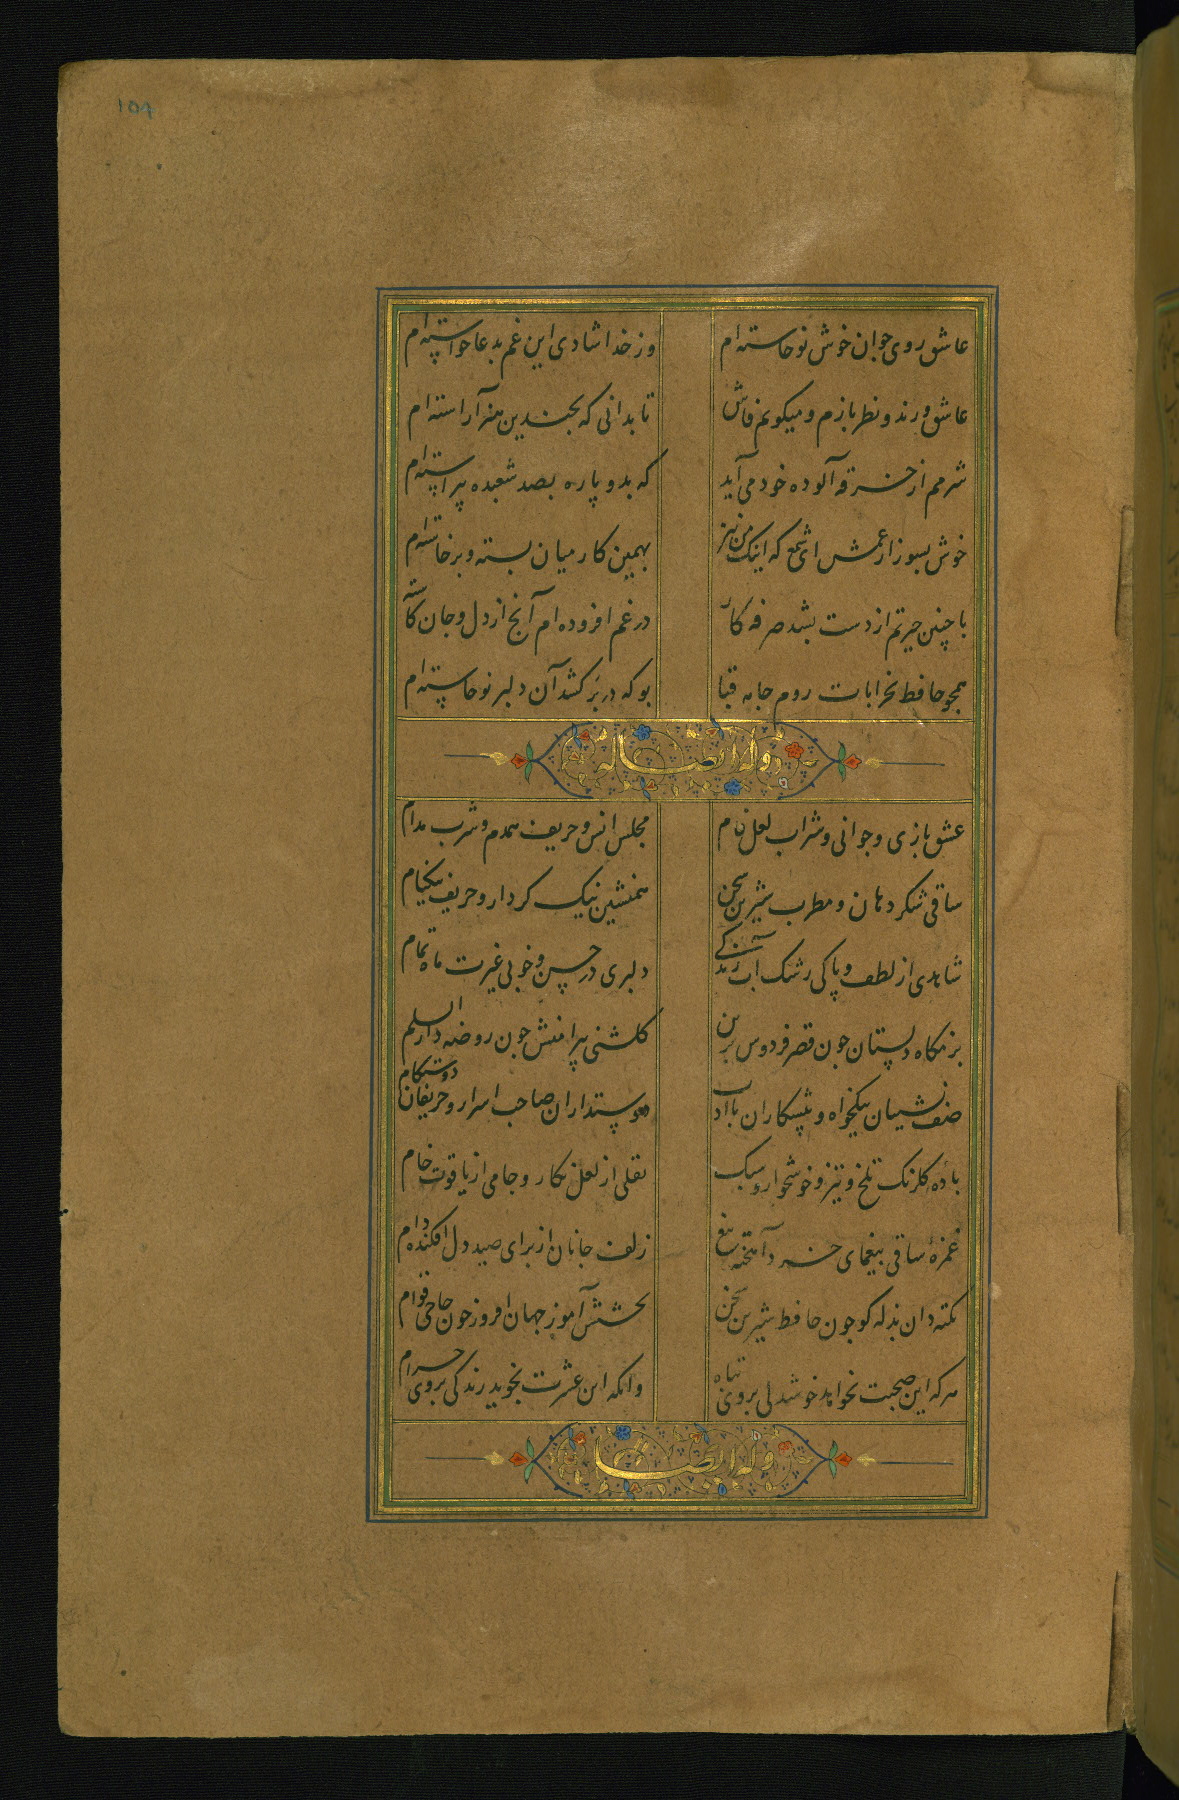 ۱۵۹
عاشق روی جوان خوش نوخاسته ام
وز خدا شادی این غم بدعا خواسته ام
عاشق و رند و نظر بازم و میکویم فاش
تا بدانی که بچندین هنر آراسته ام
شرمم از خرقه آلوده خود می آید
که بدو پاره بصد شعبده پیراسته ام
خوش بسوز از غمش ای شمع که اینک من نیز
بهمین کار میان بسته و برخاسته ام
با چنین حیرتم از دست بشد صرفه کار
در غم افزوده ام آنج از دل و جان کاسته
همچو حافظ بخرابات روم جامه قبا
بو که در بر کشد آن دلبر نوخاسته ام
وله ایضا له
عشق بازی و جوانی و شراب لعل فام
مجلس انس و حریف همدم و شرب مدام
ساقی شکر دهان و مطرب شیرین سخن
همنشین نیک کردار و حریف نیکنام
شاهدی از لطف و پاکی رشک آب زندکی
دلبری در حسن و خوبی غیرت ماه تمام
بزمکاه دلستان چون قصر فردوس برین
کلشنی پیرامنش چون روضه دار السلم
صف نشینان نیکخواه و پیشکاران باادب
دوستداران صاحب اسرار و حریفان دوستکام
بادهٔ کلرنک تلخ و تیز و خوشخوار و سبک
نقلی از لعل نکار و جامی از یاقوت خام
غمزهٔ ساقی بیغمای خرد آهخته تیغ
زلف جانان از برای صید دل افکنده دام
نکته دان بذله کو چون حافظ شیرین سخن
بخشش آموز جهان افروز چون حاجی قوام
هر که این صحبت نخواهد خوشدلی بر وی تباه
وانکه این عشرت نجوید زندکی بر وی حرام
وله ایضا